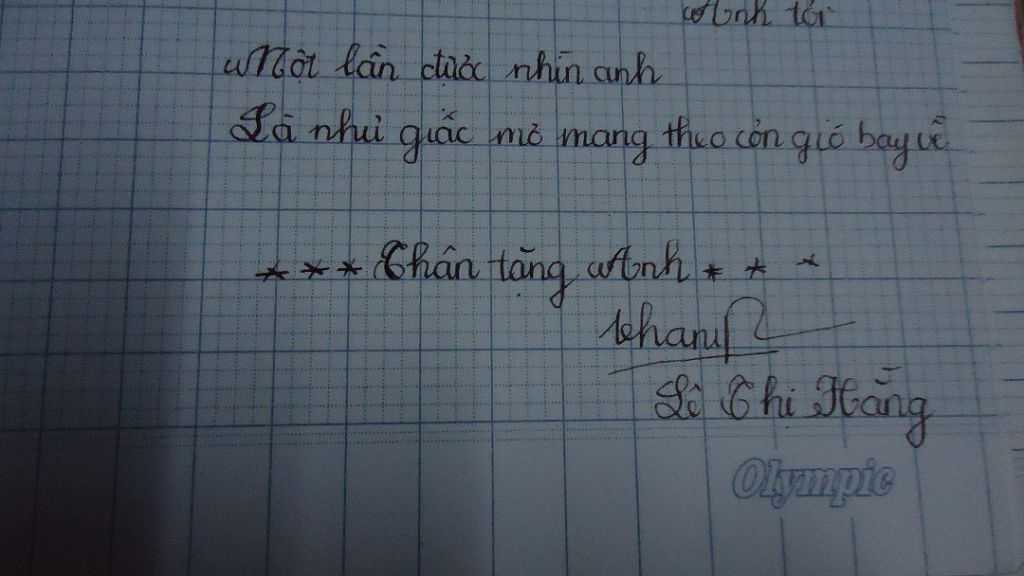 Anh tới
Một lần được nhìn anh
Là như giấc mơ mang theo cơn gió bay về
*** Thân tặng Anh ***
Lê Thị Hằng
Olympic